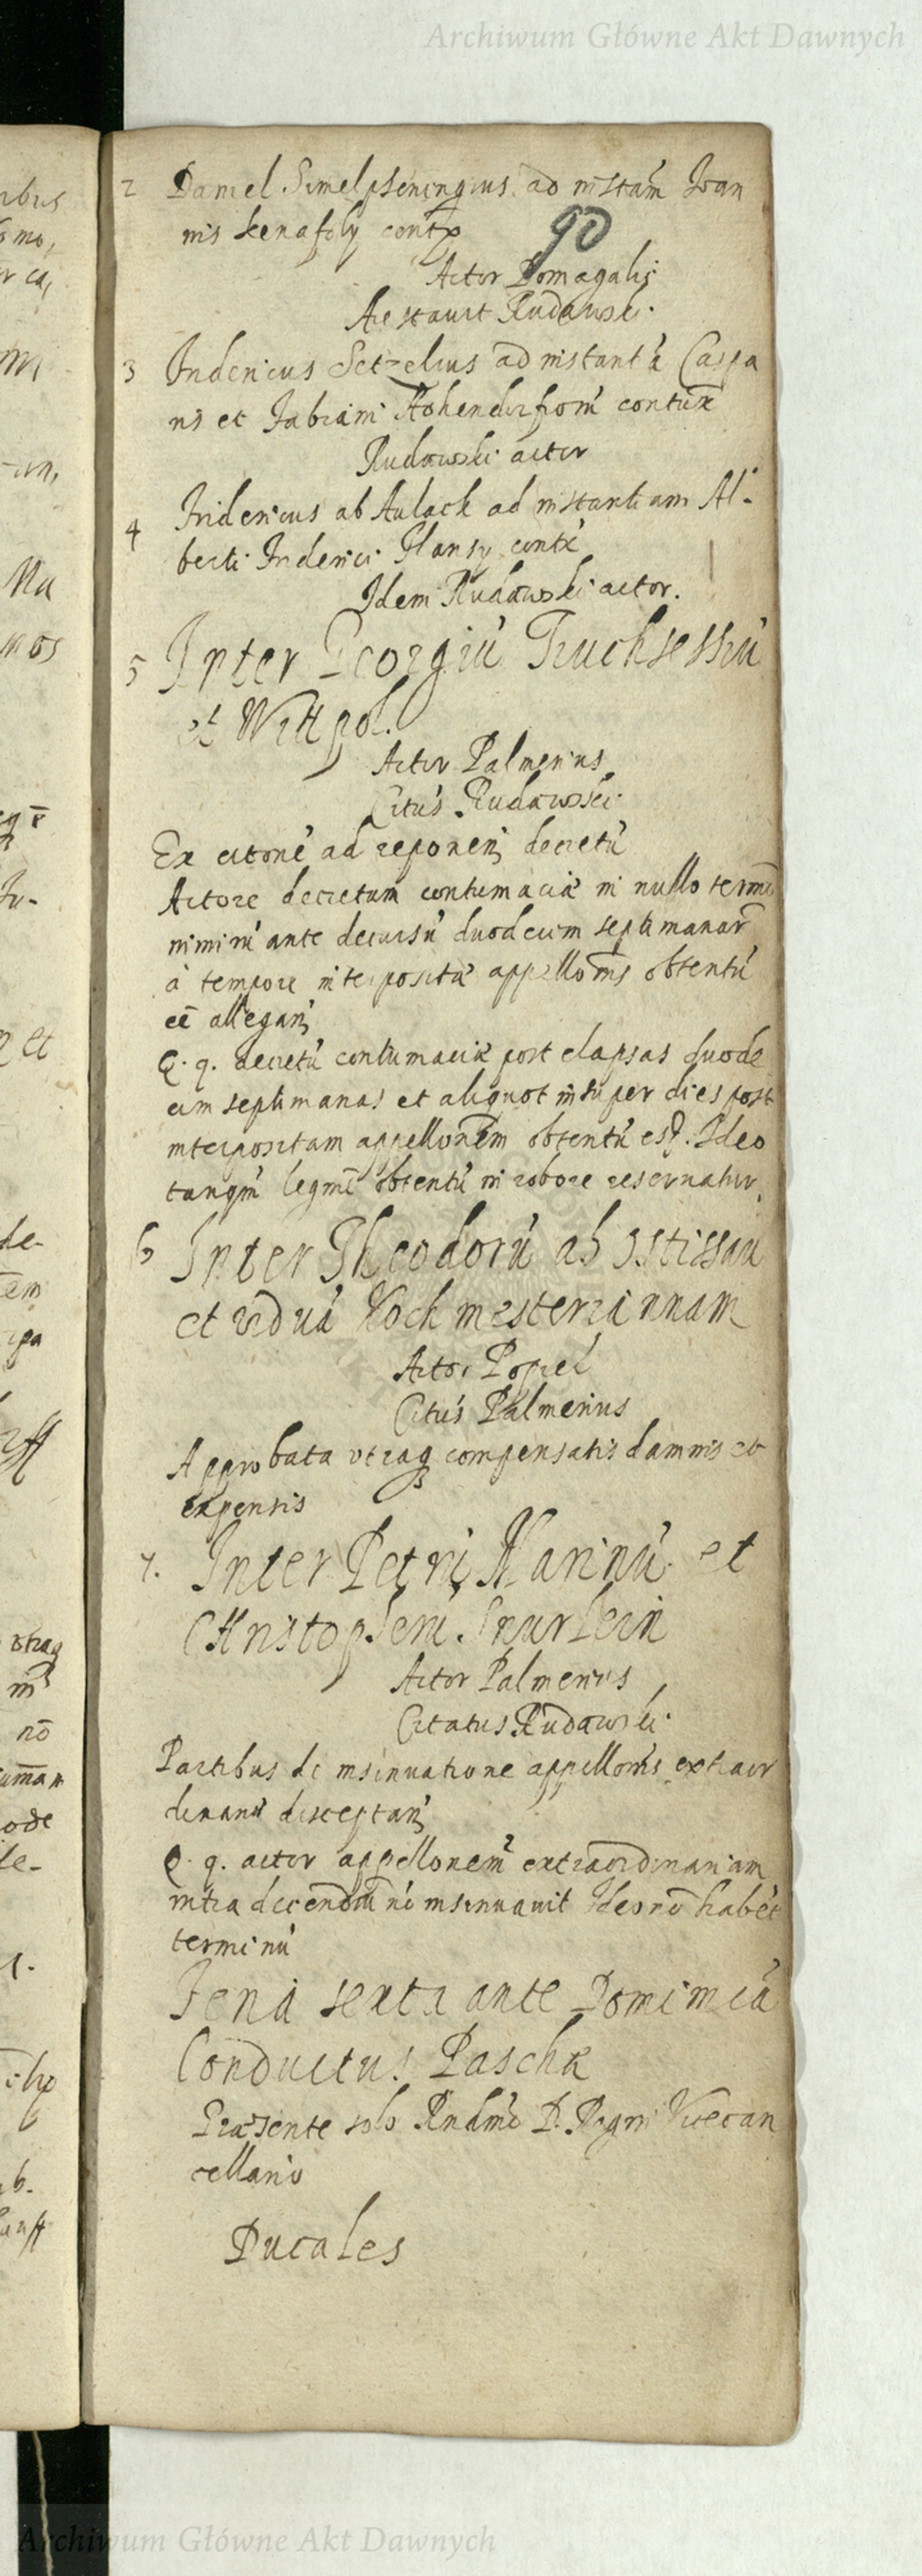 Archiwum Główne Akt Dawnych
2 Daniel Simelpseningius ad instām Ioan
nis Kenafoly contx
90
Actor Domagalis
Aestauit Rudawski.
3 Fridericus Setzelius ad instantā Caspa
ris et Fabiani Hohendirfiorū contux
Rudawski actor
4 Fridericus ab Aulack ad instantiam Al-
berti Friderici Glansy contx
Idem Rudawski actor.
5 Inter Georgiū Truchsessiū
et Wittpol.
Actor Palmerius
Citūs Rudawski
Ex citone ad reponen decretū
Actore decretum contumaciæ in nullo termi
nimirū ante decursū duodecim septimanar
à tempore interpositæ appellonis obtentū
eē allegan
Q. q. decretū contumaciæ post elapsas duode
cim septimanas et aliquot insuper dies post
interpositam appellonem obtentū est. Ideo
tanqm legmē obtentū in robore reseruatur.
6 Inter Theodorū ab Ostissau
et viduā Kochmesterziannam
Actor Popiel
Citūs Palmerius
Approbata vtraq compensatis damnis et
expensis
7. Inter Petrū Marinū et
Christopherū Snurlein
Actor Palmerius
Citatus Rudawski
Partibus de insinuatione appellonis extraor
dinariæ disceptan
Q. q. actor appellonem extraordinariam
intra decendiū nō insinuauit Ideo nō habet
terminū
Feria sexta ante Dominicā
Conductus Paschæ
Præsente solo Rndmo D. Regni Vicecan
cellario
Ducales
Archiwum Główne Akt Dawnych